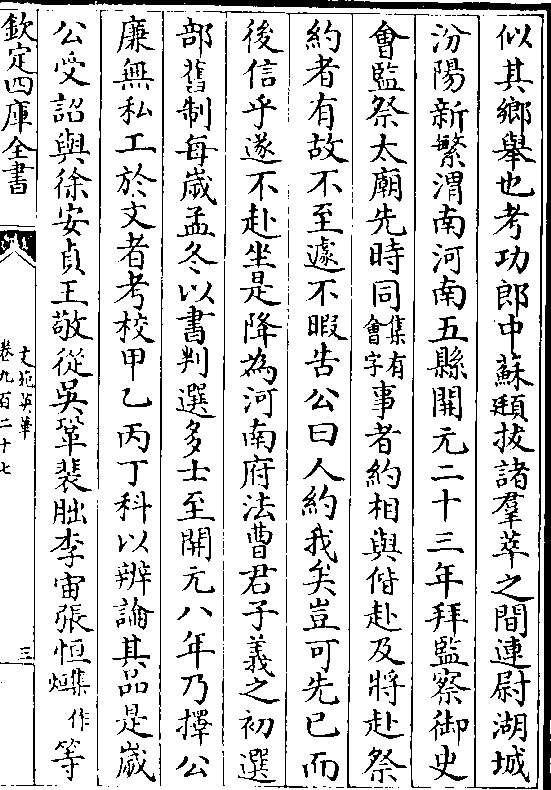 似其鄉舉也考功郎中蘇頲拔諸羣萃之間連尉湖城
汾陽新繁渭南河南五縣開元二十三年拜監察御史
會監祭太廟先時同集有會字事者約相與偕赴及將赴祭
約者有故不至遽不暇告公曰人約我矣豈可先已而
後信乎遂不赴坐是降為河南府法曹君子義之初選
部舊制每歲孟冬以書判選多士至開元八年乃擇公
廉無私工於文者考校甲乙丙丁科以辨論其品是歲
公受詔與徐安貞王敬從吳鞏裴朏李宙張恒集作烜等
欽定四庫全書
文苑英華
卷九百二十七
三